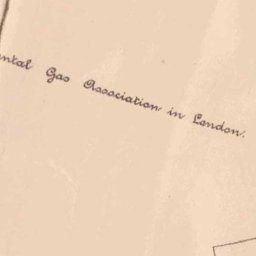 ntal Gas Association in London.